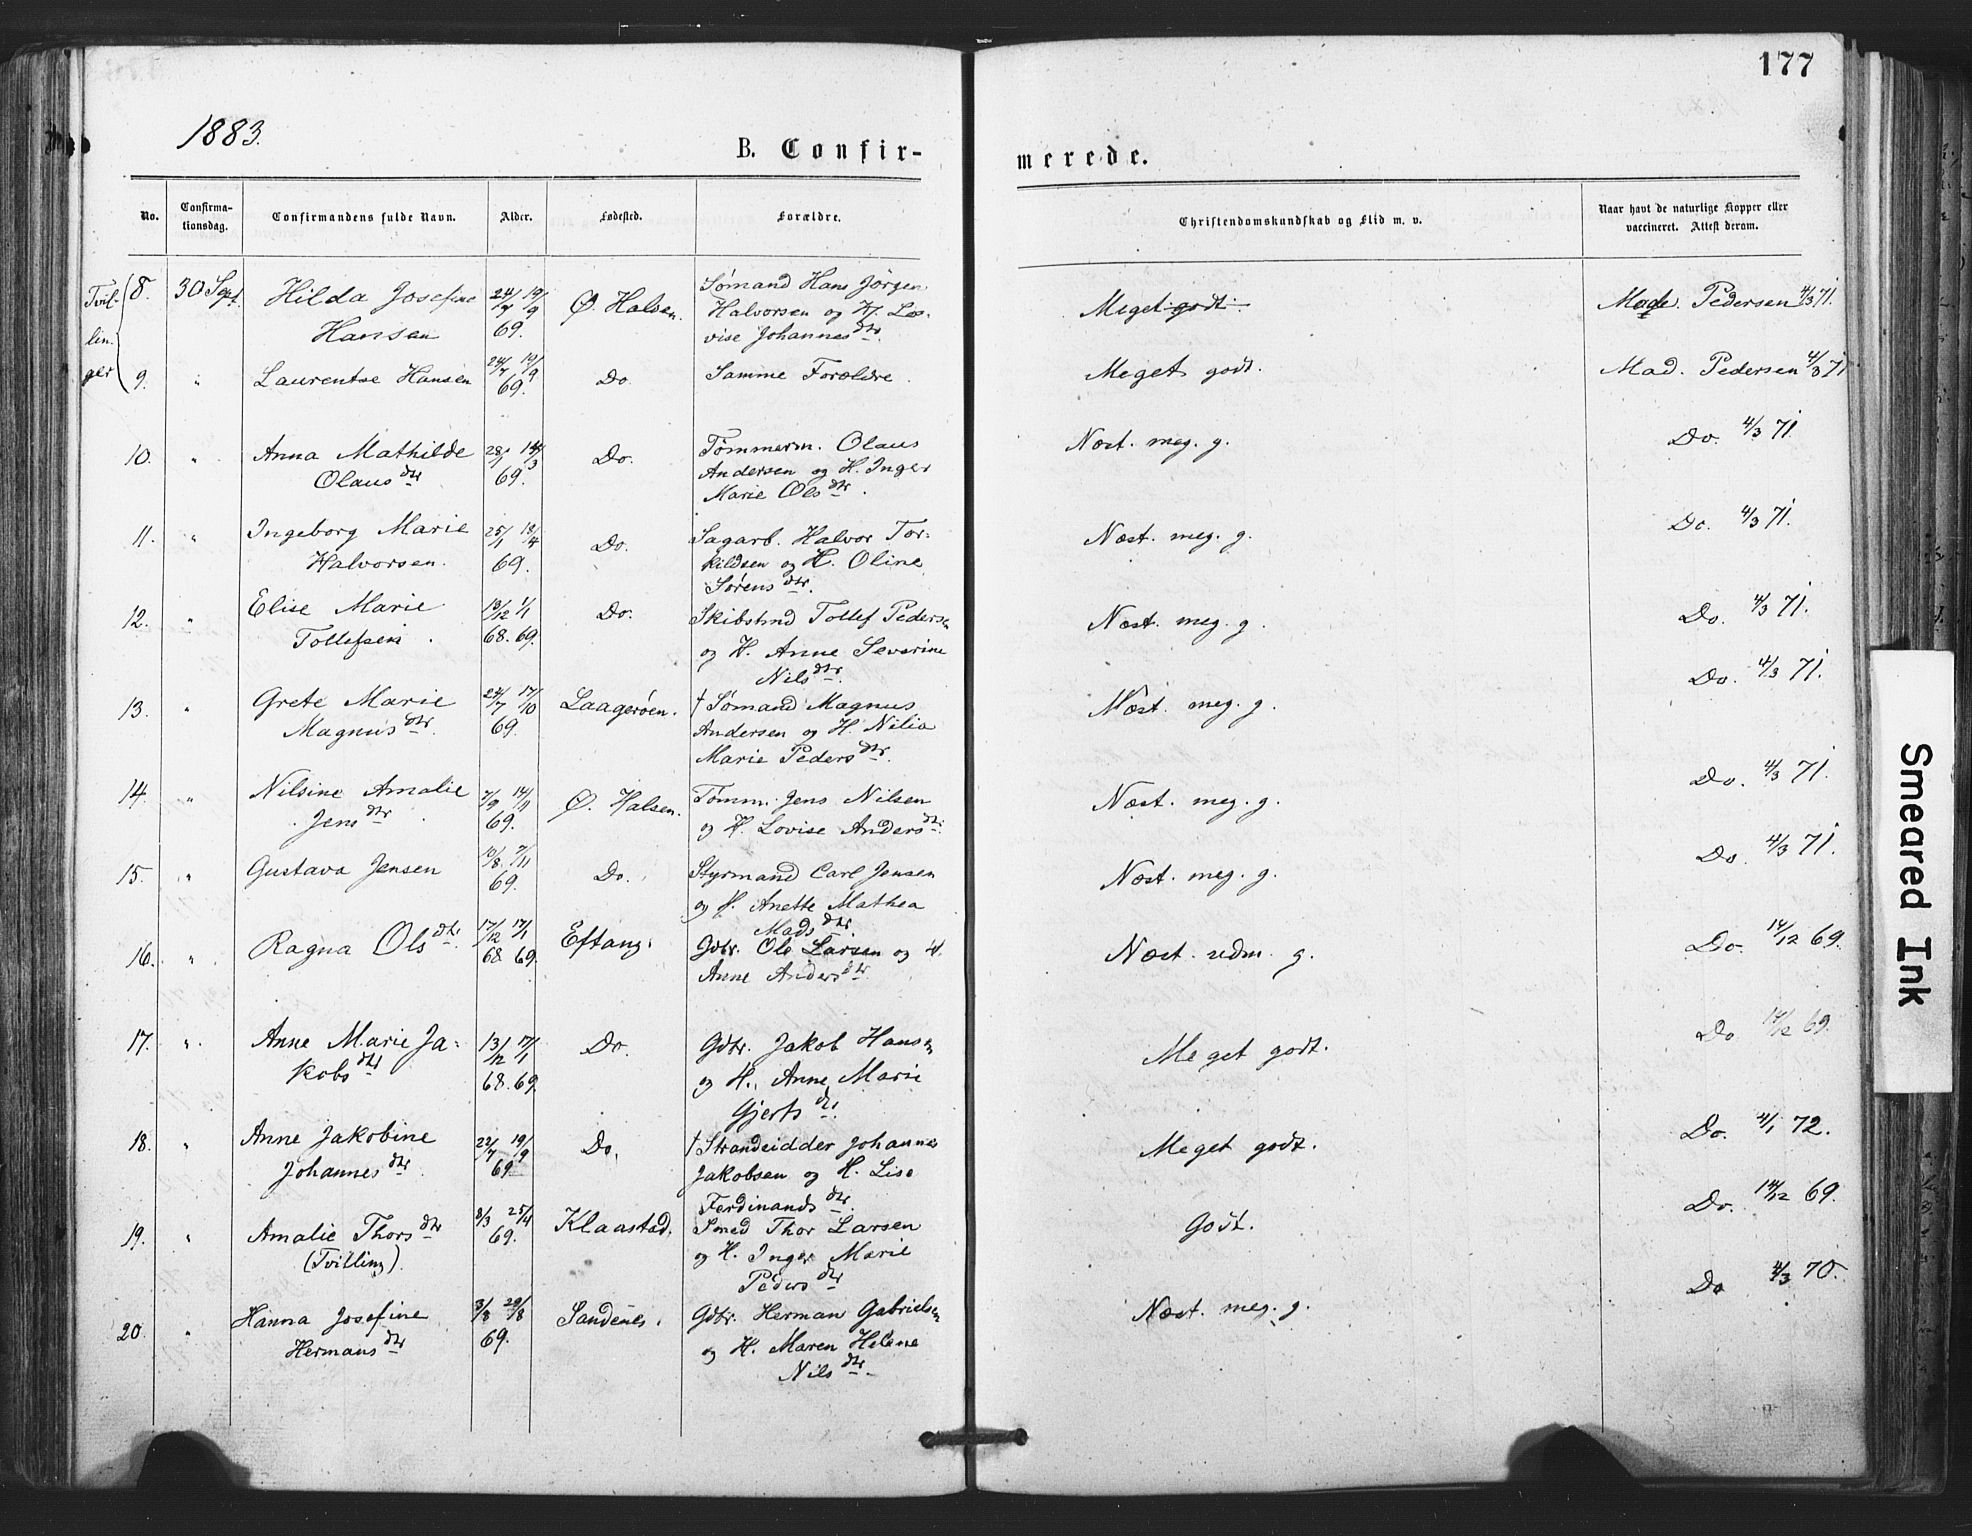 177
1883.
B. Confir-
merede.
No.
Confirma-
tionsdag.
Confirmandens fulde Navn.
Alder.
Fødested.
Forældre.
Christendomskundskab og Flid m. v.
Naar havt de naturlige Kopper eller
vaccineret. Attest derom.
Tvil-
lin-
ger
8. 30 Sept. Hilda Josefine 24/7 19/9 Ø. Halsen. Sømand Hans Jörgen Meget godt. Made. Pedersen 4/3 71.
Hansen 69. Halvorsen og H. Lo-
vise Johannesdtr.
9. " Laurentse Hansen 24/7 19/9 69. Do. Samme Forældre. Meget godt. Mad. Pedersen 4/3 71
10. " Anna Mathilde 28/1 14/3 Do. Tømmerm. Olaus Næst. meg. g. Do. 4/3 71.
Olausdtr 69. Andersen og H. Inger
Marie Olsdtr.
11. " Ingeborg Marie 25/1 18/4 Do. Sagarb. Halvor Tor- Næst. meg. g. Do. 4/3 71.
Halvorsen. 69. kildsen og H. Oline
Sørensdtr.
12. " Elise Marie 13/12 1/1 Do. Skibstmd Tollef Pedersen Næst. meg. g. Do. 4/3 71.
Tollefsen. 68. 69. og H. Anne Severine
Nilsdtr.
13. " Grete Marie 24/7 17/10 Laagerøen. † Sømand Magnus Næst. meg. g. Do. 4/3 71.
Magnusdtr. 69. Andersen og H. Nilia
Marie Pedersdtr.
14. " Nilsine Amalie 7/9 14/11 Ø. Halsen. Tømm. Jens Nilsen Næst. meg. g. Do. 4/3 71.
Jensdtr. 69. og H. Lovise Andersdtr.
15. " Gustava Jensen 10/8 7/11 Do. Styrmand Carl Jensen Næst. meg. g. Do. 4/3 71.
69. og H. Anette Mathea
Madsdtr.
16. " Ragna Olsdtr. 17/12 17/1 Eftang. Gdbr. Ole Larsen og H. Næst. udm. g. Do. 14/12 69.
68 69. Anne Andersdtr.
17. " Anne Marie Ja- 13/12 17/1 Do. Gdbr. Jakob Hansen Meget godt. Do 14/12 69.
kobsdtr 68. 69. og H. Anne Marie
Gjertsdtr.
18. " Anne Jakobine 22/7 19/9 Do. † Strandsidder Johannes Meget godt. Do. 4/1 72.
Johannesdtr. 69. Jakobsen og H. Lise
Ferdinandsdtr.
19. " Amalie Thorsdtr 8/3 25/4 Klaastad. Smed Thor Larsen Godt. Do. 14/12 69.
(Tvilling). 69. og H. Inger Marie
Pedersdtr
20. " Hanna Josefine 3/3 29/8 Sandenes. Gdbr. Herman Gabrielsen Næst. meg. g. Do 4/3 70.
Hermansdtr 69. og H. Maren Helene
Nilsdtr.
Smeared Ink